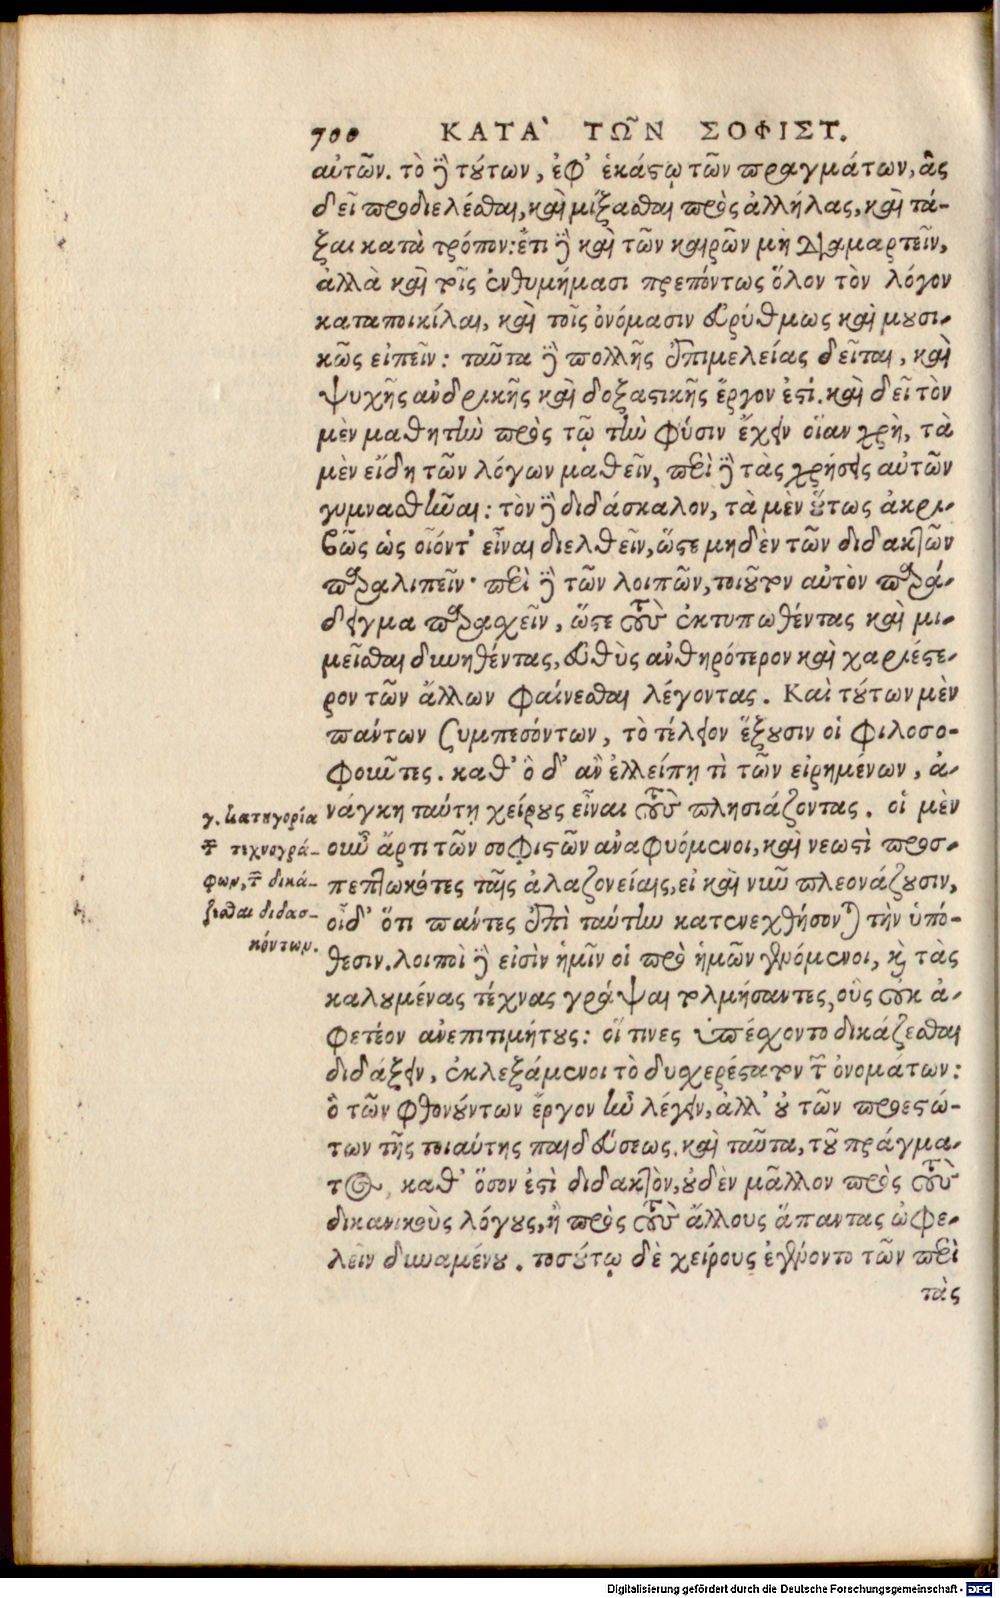 700 ΚΑΤΑ` ΤΩ͂Ν ΣΟΦΙΣΤ.
αὐτῶν. τὸ δὲ τούτων, ἐφ' ἑκάστῳ τῶν πραγμάτων, ἃς
δεῖ προδιελέσθαι, καὶ μίξασθαι πρὸς ἀλλήλας, καὶ τά-
ξαι κατὰ τρόπον: ἔτι δὲ καὶ τῶν καιρῶν μὴ διαμαρτεῖν,
ἀλλὰ καὶ τοῖς ἐνθυμήμασι πρεπόντως ὅλον τὸν λόγον
καταποικίλαι, καὶ τοῖς ὀνόμασιν εὐρύθμως καὶ μουσι-
κῶς εἰπεῖν: ταῦτα δὲ πολλῆς ἐπιμελείας δεῖται, καὶ
ψυχῆς ἀνδρικῆς καὶ δοξαστικῆς ἔργον ἐστί. καὶ δεῖ τὸν
μὲν μαθητὴν πρὸς τῷ τὴν φύσιν ἔχειν οἵαν χρὴ, τὰ
μὲν εἴδη τῶν λόγων μαθεῖν, περὶ δὲ τὰς χρήσεις αὐτῶν
γυμνασθῆναι: τὸν δὲ διδάσκαλον, τὰ μὲν οὕτως ἀκρι-
βῶς ὡς οἷόντ' εἶναι διελθεῖν, ὥστε μηδὲν τῶν διδακτῶν
παραλιπεῖν· περὶ δὲ τῶν λοιπῶν, τοιοῦτον αὐτὸν παρά-
δειγμα παρασχεῖν, ὥστε τοὺς ἐκτυπωθέντας καὶ μι-
μεῖσθαι δυνηθέντας, εὐθὺς ἀνθηρότερον καὶ χαριέστε-
ρον τῶν ἄλλων φαίνεσθαι λέγοντας. Καὶ τούτων μὲν
πάντων ζυμπεσόντων, τὸ τέλειον ἕξουσιν οἱ φιλοσο-
φοῦντες. καθ' ὃ δ' ἂν ἐλλείπῃ τὶ τῶν εἰρημένων, ἀ-
νάγκη ταύτῃ χείρους εἶναι τοὺς πλησιάζοντας. οἱ μὲν
οὖν ἄρτι τῶν σοφιστῶν ἀναφυόμενοι, καὶ νεωστὶ προσ-
πεπτωκότες ταῖς ἀλαζονείαις, εἰ καὶ νῦν πλεονάζουσιν,
οἶδ' ὅτι πάντες ἐπὶ ταύτην κατενεχθήσονται τὴν ὑπό-
θεσιν. λοιποὶ δὲ εἰσὶν ἡμῖν οἱ πρὸ ἡμῶν γενόμενοι, καὶ τὰς
καλουμένας τέχνας γράψαι τολμήσαντες, οὓς οὐκ ἀ-
φετέον ἀνεπιτιμήτους: οἵ τινες ὑπέσχοντο δικάζεσθαι
διδάξειν, ἐκλεξάμενοι τὸ δυσχερέστατον τῶν ὀνομάτων:
ὃ τῶν φθονούντων ἔργον ἦν λέγειν, ἀλλ' οὐ τῶν προεστώ-
των τῆς τοιαύτης παιδεύσεως. καὶ ταῦτα, τοῦ πράγμα-
τος, καθ' ὅσον ἐστὶ διδακτὸν, οὐδὲν μᾶλλον πρὸς τοὺς
δικανικοὺς λόγους, ἢ πρὸς τοὺς ἄλλους ἅπαντας ὠφε-
λεῖν δυναμένου. τοσούτῳ δὲ χείρους ἐγένοντο τῶν περὶ
τὰς
γ. κατηγορία
τῶν τεχνογρά-
φων, τῶν δικά-
ζεσθαι διδασ-
κόντων.
Digitalisierung gefördert durch die Deutsche Forschungsgemeinschaft - DFG